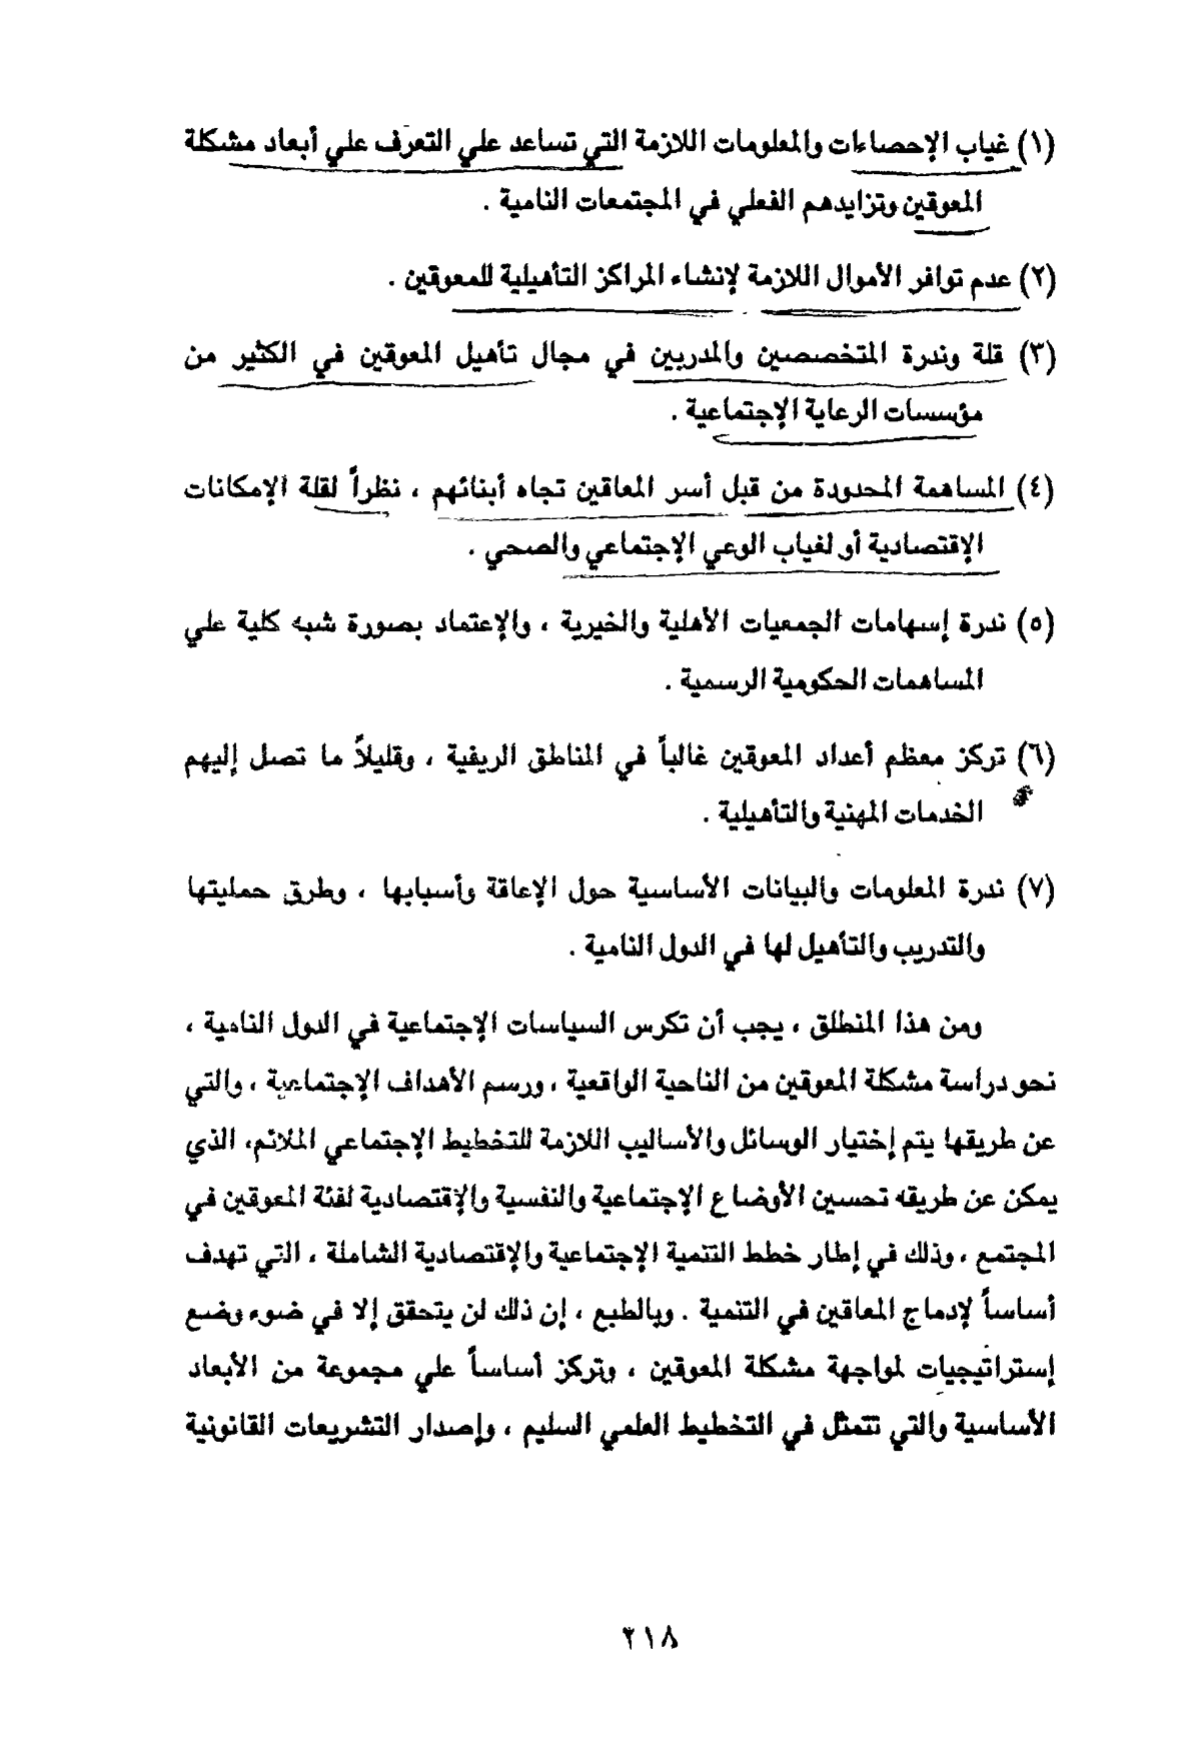 (١) غياب الإحصاءات والمعلومات اللازمة التي تساعد علي التعرف علي أبعاد مشكلة
المعوقين وتزايدهم الفعلي في المجتمعات النامية .
(٢) عدم توافر الأموال اللازمة لإنشاء المراكز التأهيلية للمعوقين .
(٣) قلة وندرة المتخصصين والمدربين في مجال تأهيل المعوقين في الكثير من
مؤسسات الرعاية الإجتماعية .
(٤) المساهمة المحدودة من قبل أسر المعاقين تجاه أبنائهم ، نظراً لقلة الإمكانات
الإقتصادية أو لغياب الوعي الإجتماعي والصحي .
(٥) ندرة إسهامات الجمعيات الأهلية والخيرية ، والإعتماد بصورة شبه كلية علي
المساهمات الحكومية الرسمية .
(٦) تركز معظم أعداد المعوقين غالباً في المناطق الريفية ، وقليلاً ما تصل إليهم
الخدمات المهنية والتأهيلية .
(٧) ندرة المعلومات والبيانات الأساسية حول الإعاقة وأسبابها ، وطرق حمايتها
والتدريب والتأهيل لها في الدول النامية .
ومن هذا المنطلق ، يجب أن تكرس السياسات الإجتماعية في الدول النامية ،
نحو دراسة مشكلة المعوقين من الناحية الواقعية ، ورسم الأهداف الإجتماعية ، والتي
عن طريقها يتم إختيار الوسائل والأساليب اللازمة للتخطيط الإجتماعي الملائم، الذي
يمكن عن طريقه تحسين الأوضاع الإجتماعية والنفسية والإقتصادية لفئة المعوقين في
المجتمع ، وذلك في إطار خطط التنمية الإجتماعية والإقتصادية الشاملة ، التي تهدف
أساساً لإدماج المعاقين في التنمية . وبالطبع ، إن ذلك لن يتحقق إلا في ضوء وضع
إستراتيجيات لمواجهة مشكلة المعوقين ، وتركز أساساً علي مجموعة من الأبعاد
الأساسية والتي تتمثل في التخطيط العلمي السليم ، وإصدار التشريعات القانونية
٢١٨